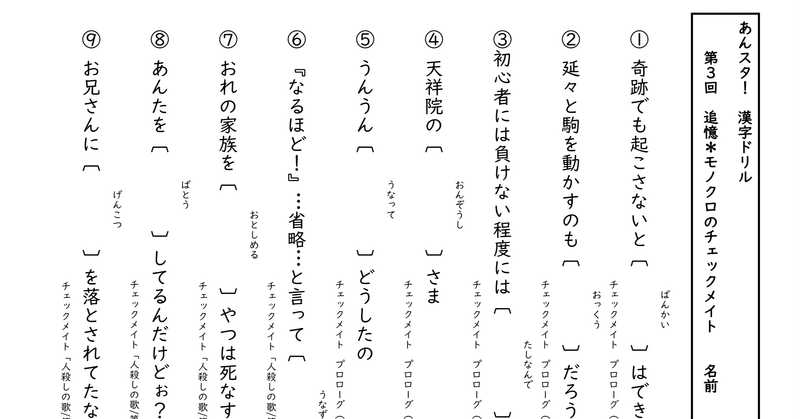 あんスタ！　漢字ドリル
第３回　追憶＊モノクロのチェックメイト　　名前
① 奇跡でも起こさないと〔　　　〕はでき
ばんかい
チェックメイト　プロローグ（
② 延々と駒を動かすのも〔　　　〕だろう
おっくう
チェックメイト　プロローグ（
③ 初心者には負けない程度には〔　　　〕
たしなんで
チェックメイト　プロローグ（
④ 天祥院の〔　　　〕さま
おんぞうし
チェックメイト　プロローグ（
⑤ うんうん〔　　　〕どうしたの
うなって
チェックメイト　プロローグ（
⑥ 『なるほど！』…省略…と言って〔
うなず
チェックメイト「人殺しの歌/
⑦ おれの家族を〔　　　〕やつは死なす
おとしめる
チェックメイト「人殺しの歌/
⑧ あんたを〔　　　〕してるんだけどぉ？
ばとう
チェックメイト「人殺しの歌/
⑨ お兄さんに〔　　　〕を落とされてたな
げんこつ
チェックメイト「人殺しの歌/